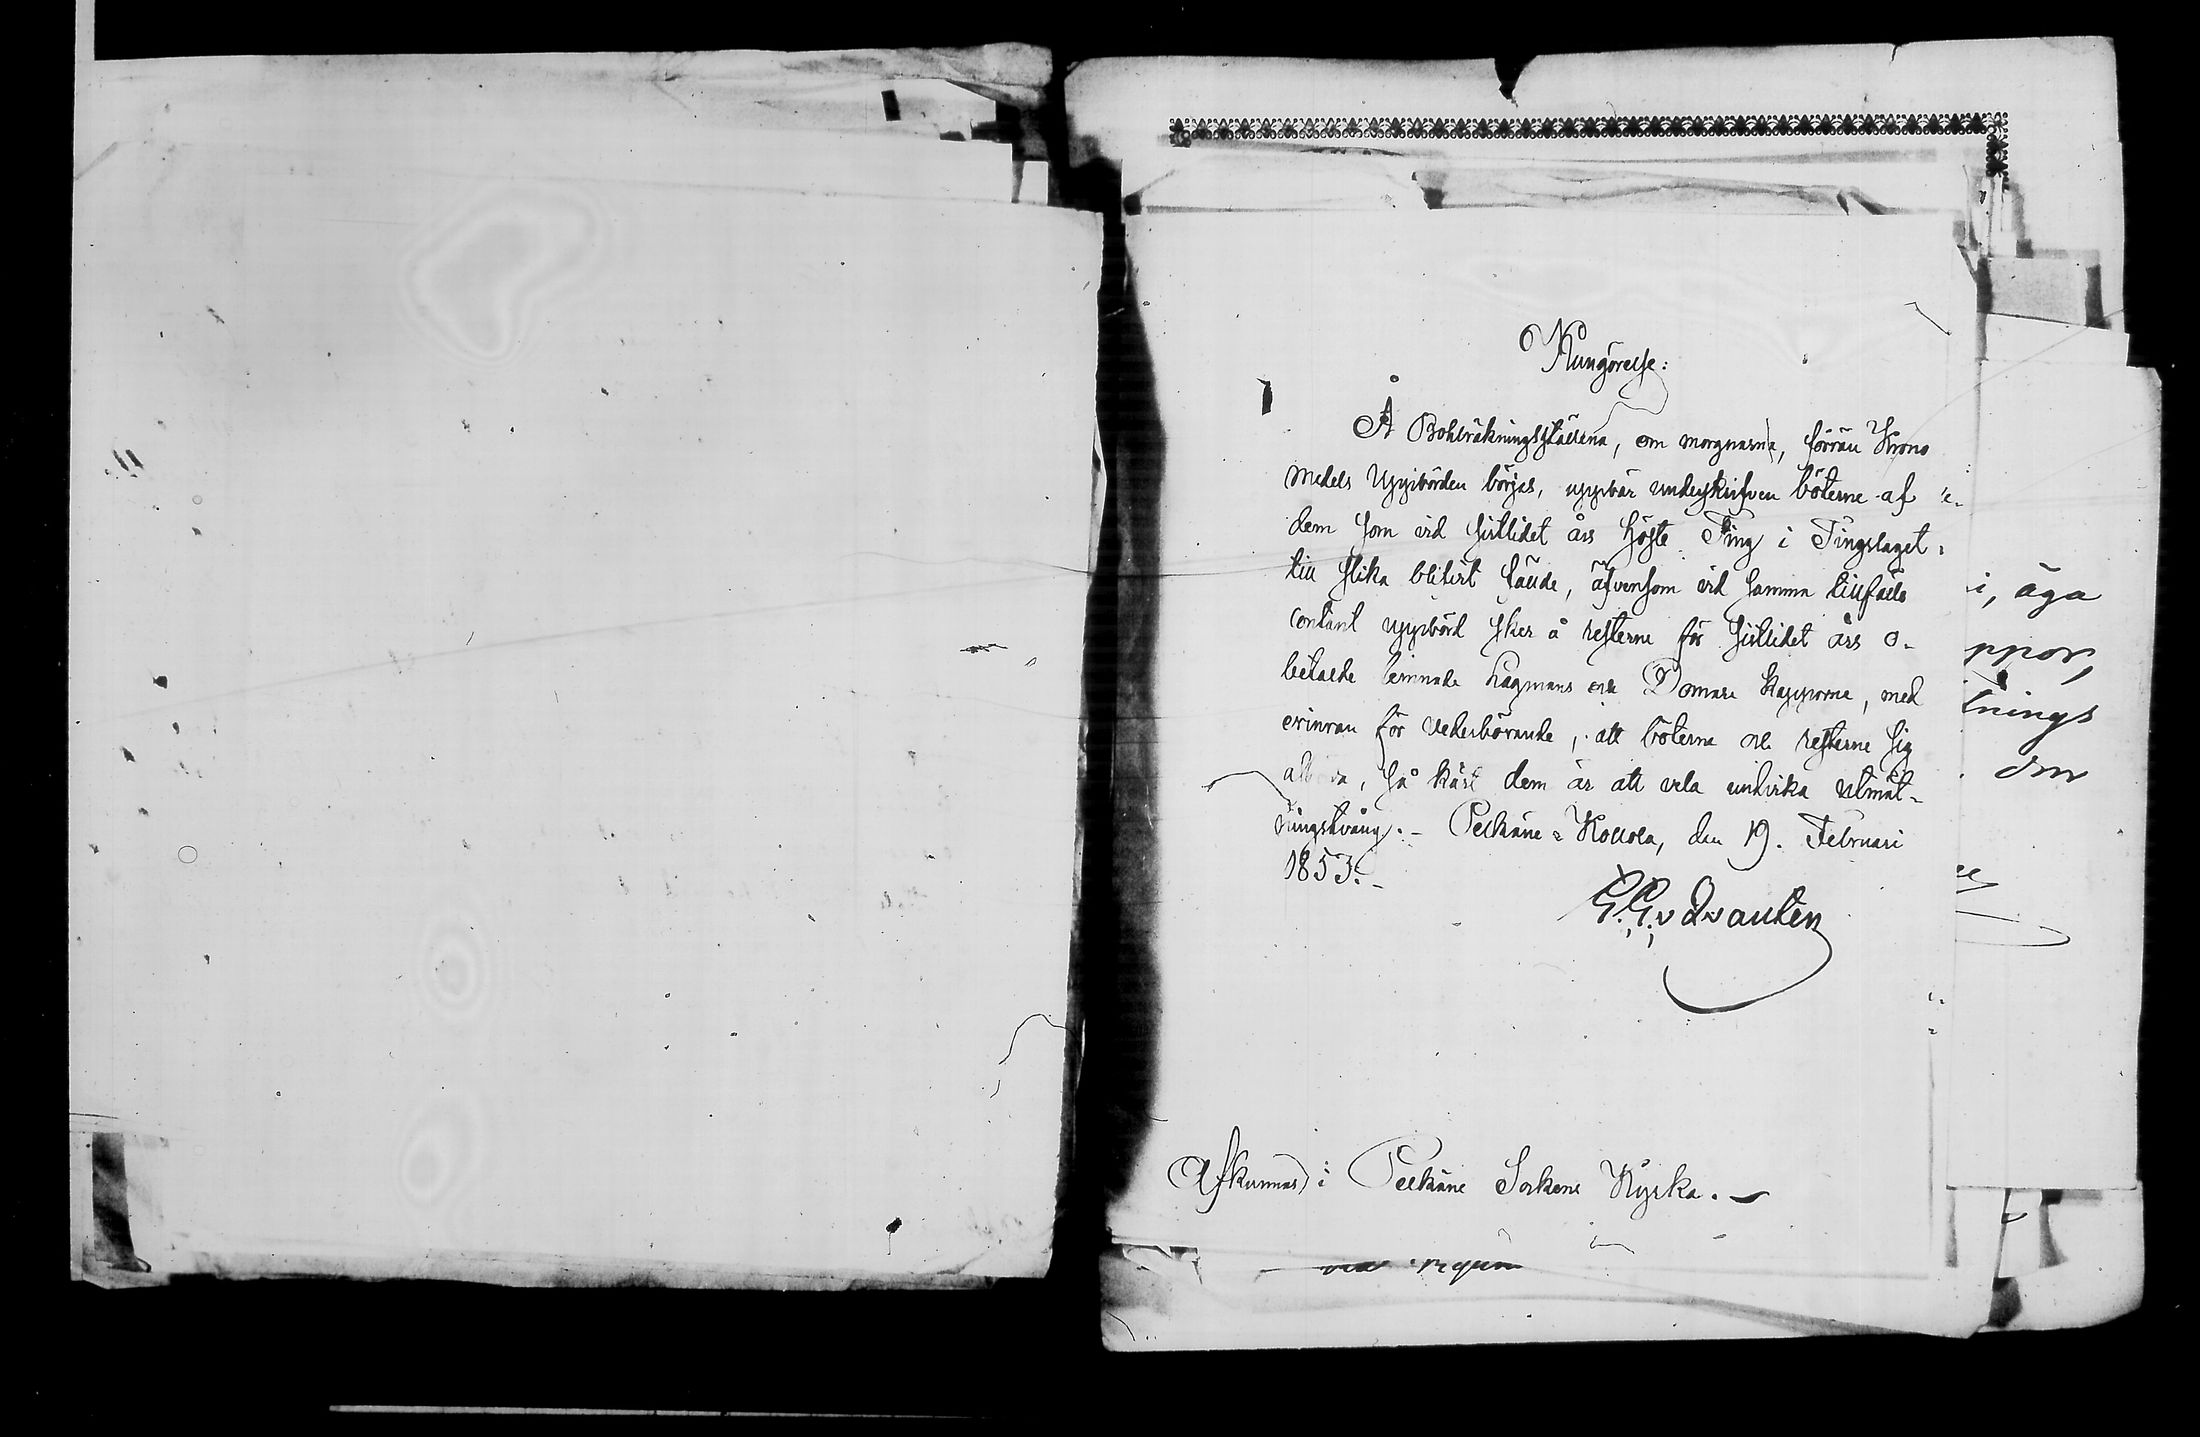 Kungörelse:
Å Bohlräkningsställena, om morgnarna, förrän Krono
medels Uppbörden börjas, uppbär underskrifven böterne af
dem som vid sistlidet års höste Ting i Tingslaget
till slika blifvit fällde, äfvensom vid samma tillfälle
contant uppbörd sker å resterne för sistlidet års o-
betalde lemnade Lagmans och Domare Kapporne, med
erinran för vederbörande, att böterne och resterne sig
afbörda, så kärt dem är att vela undvika utmät-
ningstvång. – Pelkäne Kollola, den 19. Februari
1853. –
G. G. v Qvanten
Afkunnas i Pelkäne Sockens Kyrka. –
i, äga
ppor,
tnings
om